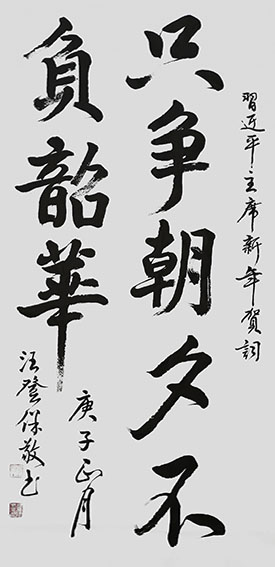 習近平主席新年贺詞
只争朝夕不
負韶華
庚子正月
汪登保敬书